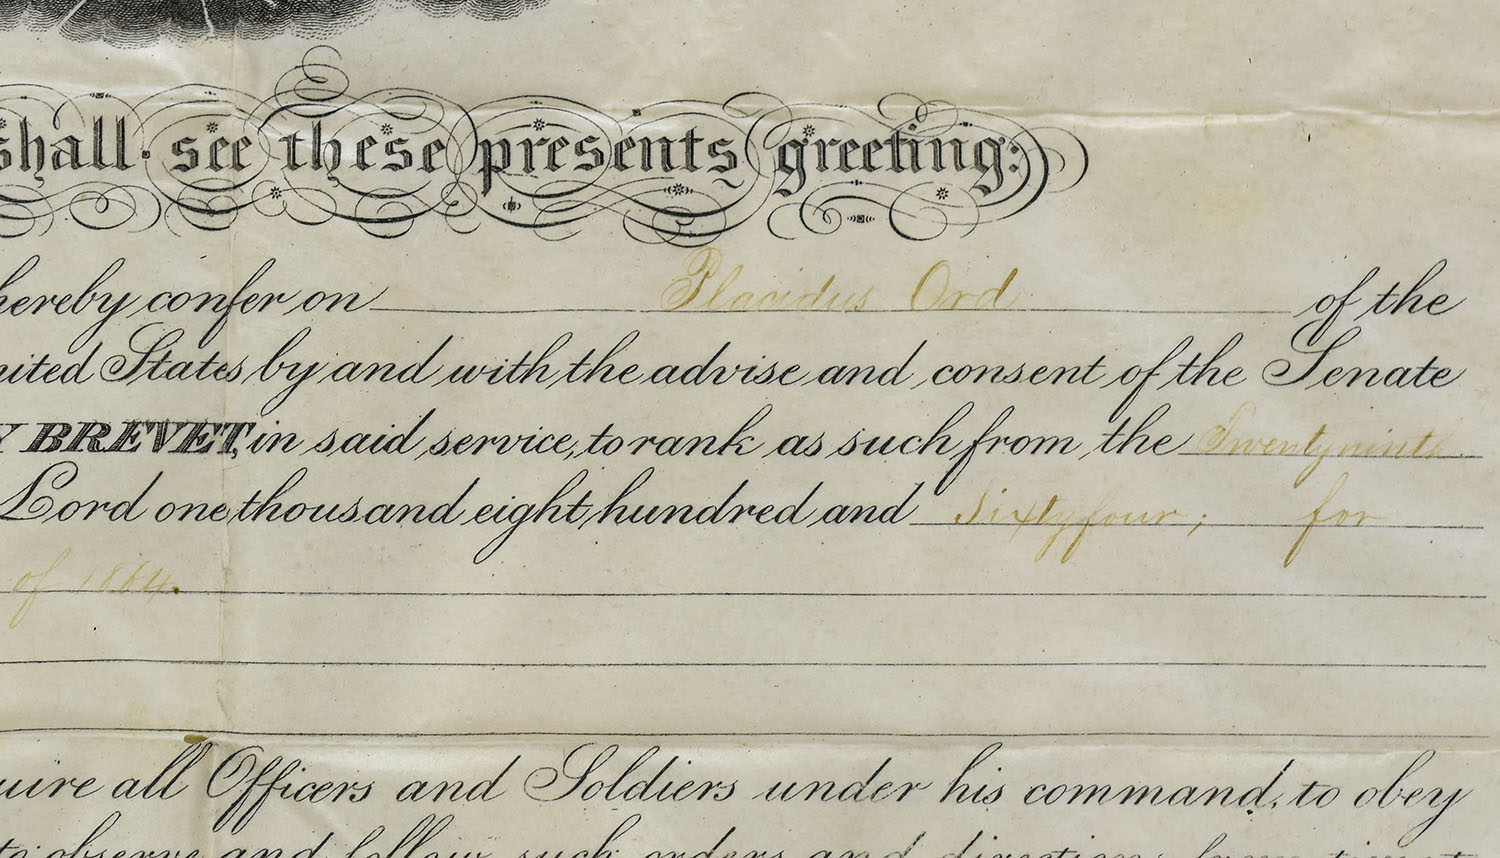 shall see these presents greeting:
hereby confer on Placidus Ord of the
United States by and with the advise and consent of the Senate
Y BREVET, in said service, to rank as such from the Twentyninth
Lord one thousand eight hundred and Sixtyfour; for
of 1864.
quire all Officers and Soldiers under his command, to obey
to observe and follow such orders and directions from time to